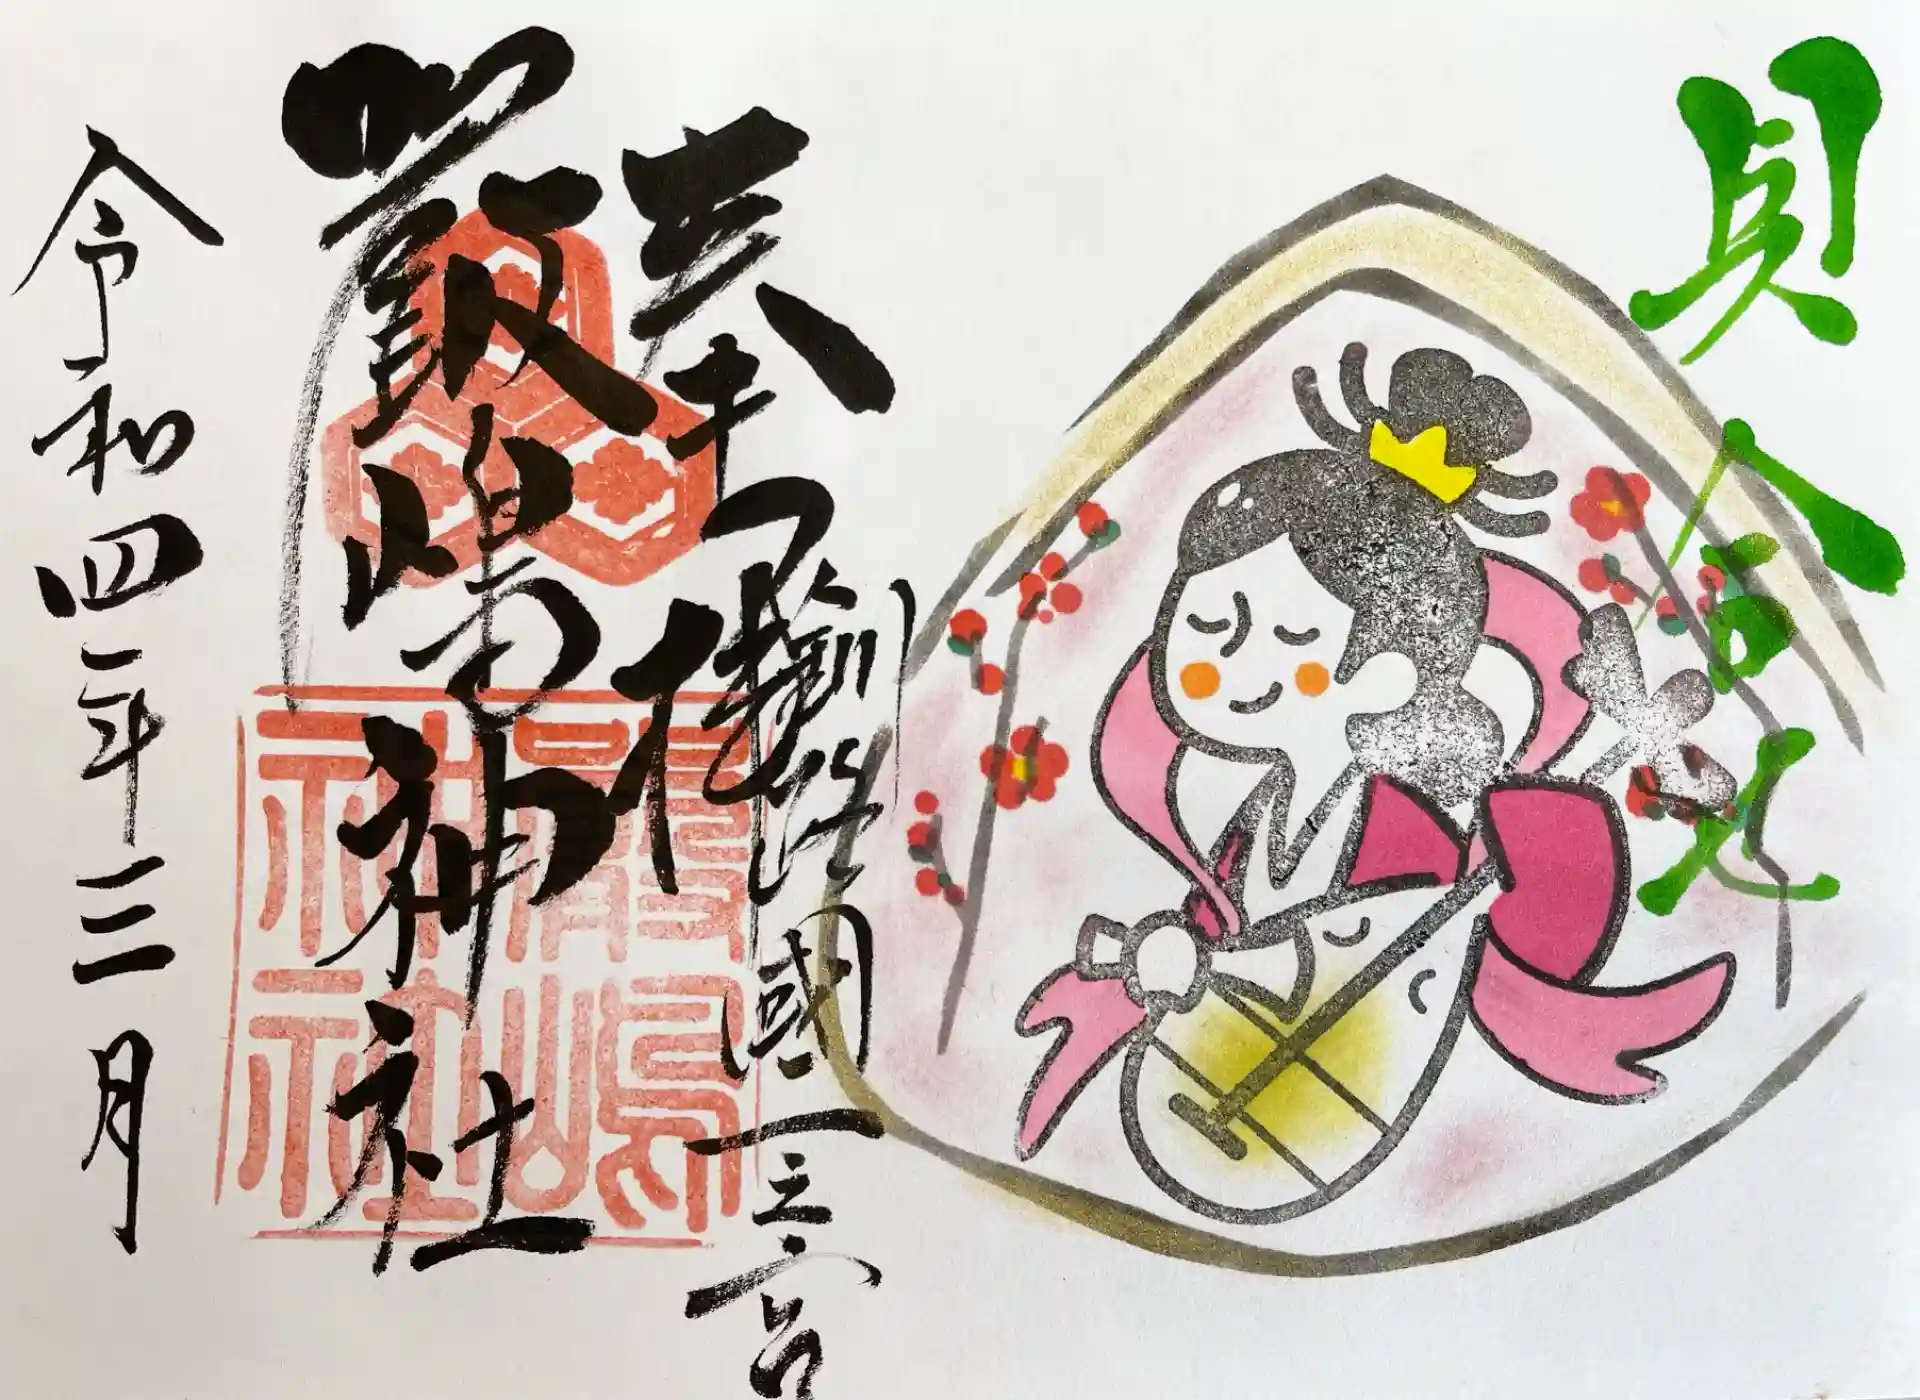 貝合せ
奉拝
釧路國一之宮
嚴嶋神社
嚴嶋神社
令和四年三月